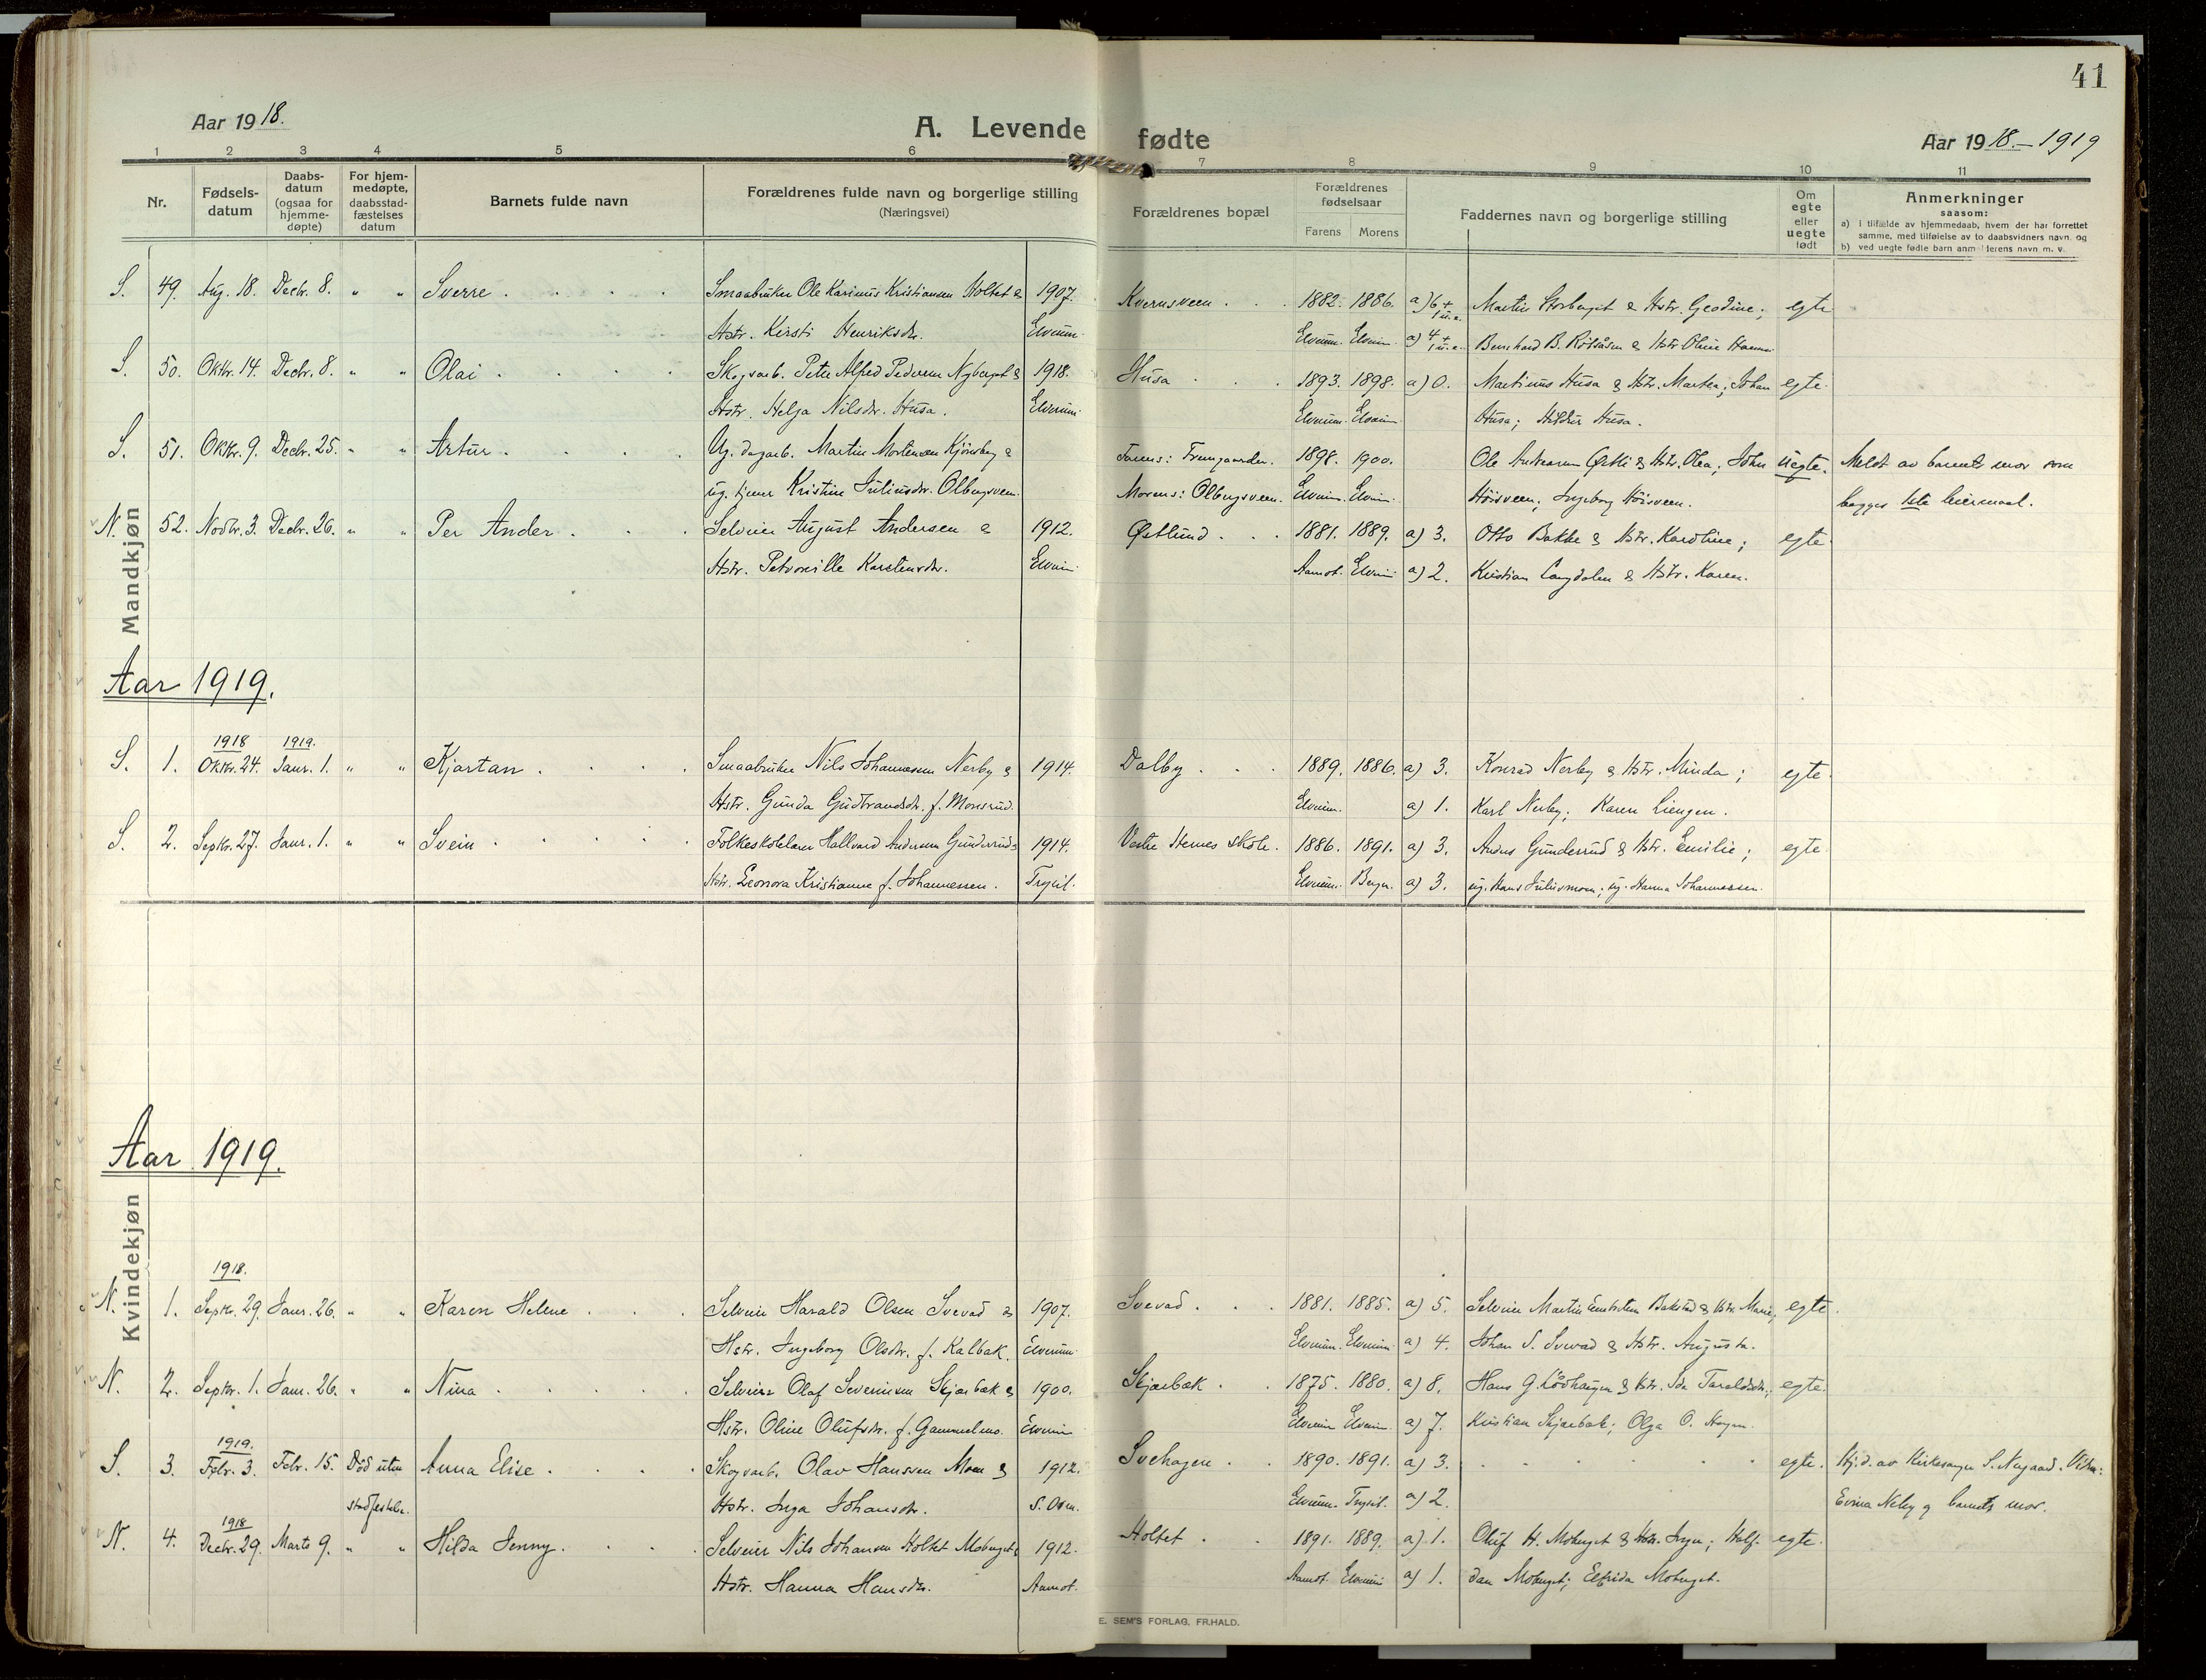 41
Aar 1918.
A. Levende fødte
Aar 1918.–1919
1 2 3 4 5 6 7 8 9 10 11
Nr.
Fødsels-
datum
Daabs-
datum
(ogsaa for
hjemme-
døpte)
For hjem-
medøpte,
daabsstad-
fæstelses
datum
Barnets fulde navn
Forældrenes fulde navn og borgerlige stilling
(Næringsvei)
Forældrenes bopæl
Forældrenes
fødselsaar
Farens Morens
Faddernes navn og borgerlige stilling
Om
egte
eller
uegte
født
Anmerkninger
saasom:
a) i tilfælde av hjemmedaab, hvem der har forrettet
samme, med tilføielse av to daabsvidners navn, og
b) ved uegte fødte barn anmelderens navn m. v.
Mandkjøn
S. 49. Aug. 18. Decbr. 8. " " Sverre . . . . Smaabruker Ole Karinus Kristiansen Holtet & 1907. Kvernsveen . . 1882. 1886. a) 6 + Martin Storberget & Hstr. Geodine; egte
Hstr. Kirsti Henriksdr. Elverum. Elverum. Elverum. a) 4 + Bernhard B. & Hstr. Oline
S. 50. Oktbr. 14. Decbr. 8. " " Olai . . . . Skogsarb. Peter Alfred Pedersen Nyberget & 1918. Husa . . . 1893. 1898. a) 0. Martinus Husa & Hstr. Martea; Johan egte.
Hstr. Helga Nilsdr. Husa. Elverum. Elverum. Elverum Husa; Hildur Husa.
S. 51. Oktbr. 9. Decbr. 25. " " Artur . . . . Ug. dagarb. Martin Mortensen Kjönsberg & Farens: Fremgaarden. 1898. 1900. Ole Andreassen & Hstr. Olea; John uegte. Meldt av barnets mor som
ug. tjener Kristine Juliusdr. Olbergsveen. Morens: Olbergsveen. Elverum. Elverum. Höisveen; Ingeborg Höisveen. begges 1ste leiermaal.
N. 52. Novbr. 3. Decbr. 26. " " Per Ander . . . Selveier August Andersen & 1912. Østlund . . . 1881. 1889. a) 3. Otto Bakke & Hstr. Karoline; egte.
Hstr. Petronille Karstensdr. Elverum Aamot. Elverum a) 2. Kristian Langdalen & Hstr. Karen.
Aar 1919.
1918 1919.
S. 1. Oktbr. 24. Janr. 1. " " Kjartan . . . . Smaabruker Nils Johannessen Nerby & 1914. Dalby . . . 1889. 1886. a) 3. Konrad Nerby & Hstr. Minda; egte.
Hstr. Gunda Gudbrandsdr. f. Monsrud. Elverum. a) 1. Karl Nerby; Karen Liengen.
S. 2. Septbr. 27. Janr. 1. " " Svein . . . . Folkeskolelærer Hallvard Andersen Gunderrud & 1914. Vestre Hernes skole. 1886. 1891. a) 3. Anders Gunderrud & Hstr. Emilie; egte
Hstr. Leonora Kristianne f. Johannessen. Trysil. Elverum. Bergen. a) 3. ug. Hans Juliusmoen; ug. Hanna Johannessen.
Aar 1919.
Kvindekjøn
1918.
N. 1. Septbr. 29. Janr. 26. " " Karen Helene . . . Selveier Harald Olsen Svevad & 1907. Svevad . . . 1881. 1885. a) 5. Selveier Martin Bakstad & Hstr. Marie; egte.
Hstr. Ingeborg Olsdr. f. Kalbak. Elverum. Elverum. Elverum a) 4. Johan S. Svevad & Hstr. Augusta.
N. 2. Septbr. 1. Janr. 26. " " Nina . . . . . Selveier Olaf Severinsen Skjærbæk & 1900. Skjærbæk . . 1875. 1880. a) 8. Hans G. Lövhaugen & Hstr. Ida Taraldsdr.; egte.
Hstr. Oline Olufsdr. f. Gammelmo. Elverum Elverum Elverum a) 7. Kristian Skjærbæk; Olga O. Hagen.
1919.
S. 3. Febr. 3. Febr. 15. Död uten Anna Elise . . . . Skogsarb. Olav Hanssen Moen & 1912. Svehagen . . 1890. 1891. a) 3. . . . . . egte. Hj.d. av Kirkesanger S. Nygaard. Vidn.:
stadfestelse. Hstr. Inga Johansdr. S. Osen. Elverum. Trysil. a) 2. Evina Neby og barnets mor.
1918
N. 4. Decbr. 29. Marts 9. " " Hilda Jenny. . . . Selveier Nils Johansen Holtet Moberget & 1912. Holtet . . 1891. 1889. a) 1. Oluf H. Moberget & Hstr. Inga; Half- egte.
Hstr. Hanna Hansdr. Aamot. Aamot. Elverum a) 1. dan Moberget; Elfrida Moberget.
E. SEM'S FORLAG, FR.HALD.